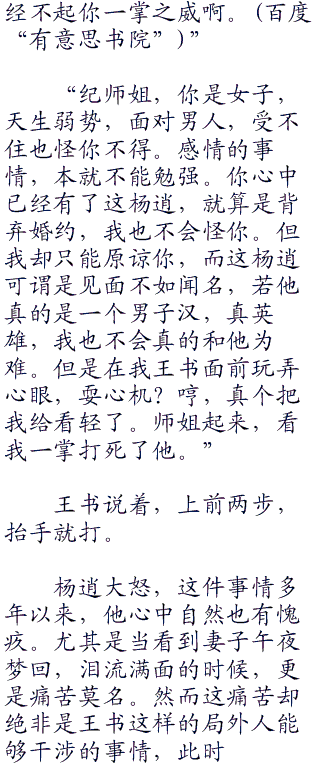 经不起你一掌之威啊。(百度
“有意思书院”)”
“纪师姐，你是女子，
天生弱势，面对男人，受不
住也怪你不得。感情的事
情，本就不能勉强。你心中
已经有了这杨逍，就算是背
弃婚约，我也不会怪你。但
我却只能原谅你，而这杨逍
可谓是见面不如闻名，若他
真的是一个男子汉，真英
雄，我也不会真的和他为
难。但是在我王书面前玩弄
心眼，耍心机？哼，真个把
我给看轻了。师姐起来，看
我一掌打死了他。”
王书说着，上前两步，
抬手就打。
杨逍大怒，这件事情多
年以来，他心中自然也有愧
疚。尤其是当看到妻子午夜
梦回，泪流满面的时候，更
是痛苦莫名。然而这痛苦却
绝非是王书这样的局外人能
够干涉的事情，此时